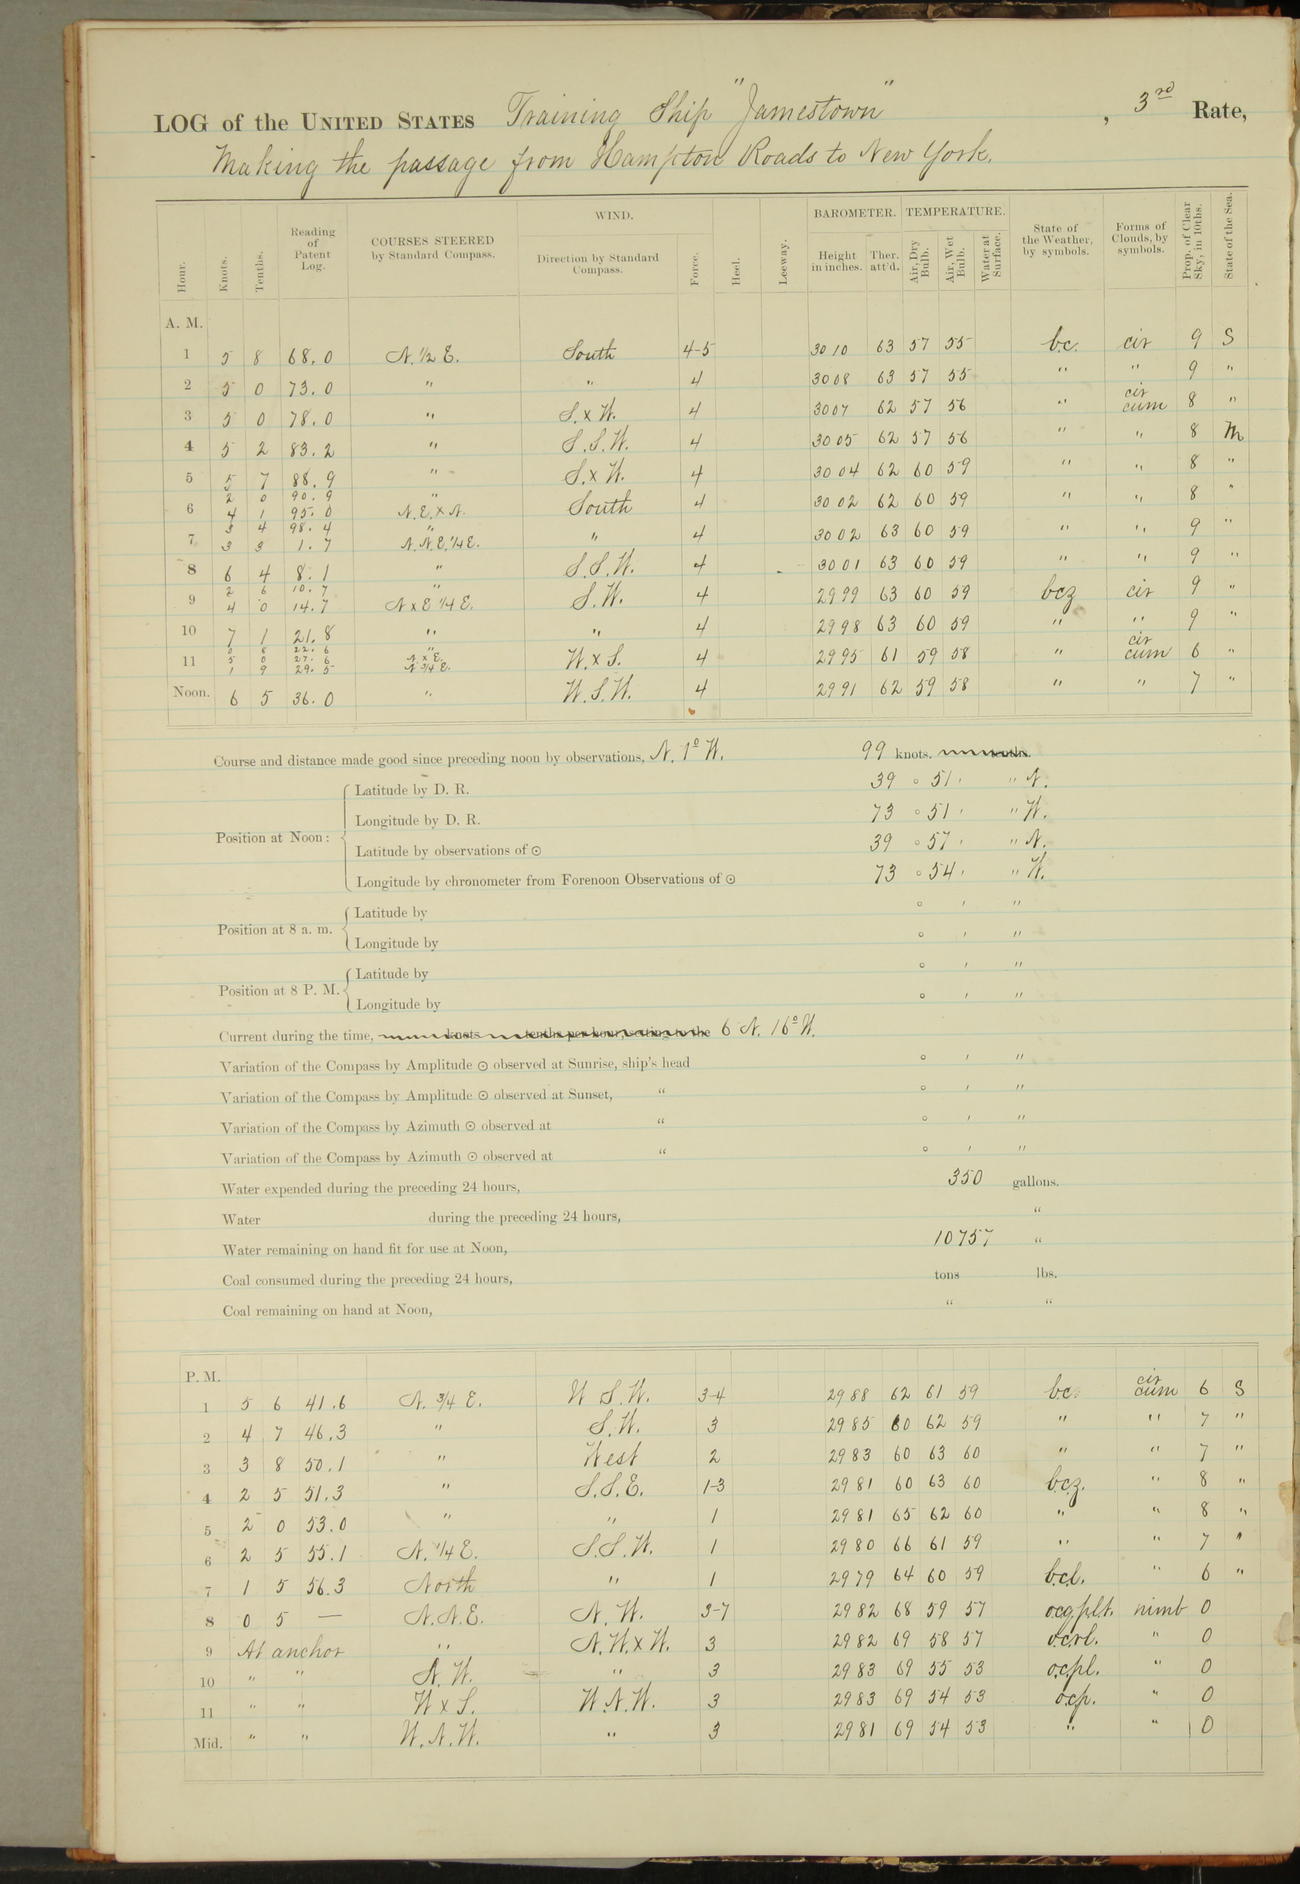 LOG of the UNITED STATES Training Ship "Jamestown", 3rd Rate,
Making the passage from Hampton Roads to New York.
Hour. Knots. Tenths. Reading of Patent Log. COURSES STEERED by Standard Compass. WIND. Direction by Standard Compass. Force. Heel. Leeway. BAROMETER. Height in inches. Ther. att'd. TEMPERATURE. Air, Dry Bulb. Air, Wet Bulb. Water at Surface. State of the Weather, by symbols. Forms of Clouds, by symbols. Prop. of Clear Sky, in 10ths. State of the Sea.
A. M.
1 5 8 68.0 N. 1/2 E. South 4-5 30 10 63 57 55 b.c. cir 9 S
2 5 0 73.0 " " 4 30 08 63 57 55 " " 9 "
3 5 0 78.0 " S. x W. 4 30 07 62 57 56 " cir cum 8 "
4 5 2 83.2 " S.S.W. 4 30 05 62 57 56 " " 8 M
5 5 7 88.9 " S. x W. 4 30 04 62 60 59 " " 8 "
2 0 90.9 "
6 4 1 95.0 N.E. x N. South 4 30 02 62 60 59 " " 8 "
3 4 98.4 "
7 3 3 1.7 N.N.E. 1/4 E. " 4 30 02 63 60 59 " " 9 "
8 6 4 8.1 " S.S.W. 4 30 01 63 60 59 " " 9 "
2 6 10.7 "
9 4 0 14.7 N x E 1/4 E. S.W. 4 29 99 63 60 59 bcz cir 9 "
10 7 1 21.8 " " 4 29 98 63 60 59 " " 9 "
0 8 22.6 "
11 5 0 27.6 N. x E. W. x S. 4 29 95 61 59 58 " cir cum 6 "
1 9 29.5 N 3/4 E.
Noon. 6 5 36.0 " W.S.W. 4 29 91 62 59 58 " " 7 "
Course and distance made good since preceding noon by observations, N. 1° W. 99 knots.
Position at Noon:
Latitude by D. R. 39 ° 51 ' " N.
Longitude by D. R. 73 ° 51 ' " W.
Latitude by observations of ☉ 39 ° 57 ' " N.
Longitude by chronometer from Forenoon Observations of ☉ 73 ° 54 ' " W.
Position at 8 a. m.
Latitude by ° ' "
Longitude by ° ' "
Position at 8 P. M.
Latitude by ° ' "
Longitude by ° ' "
Current during the time, knots tenths per hour, setting to the 6 N. 16° W.
Variation of the Compass by Amplitude ☉ observed at Sunrise, ship's head ° ' "
Variation of the Compass by Amplitude ☉ observed at Sunset, " ° ' "
Variation of the Compass by Azimuth ☉ observed at " ° ' "
Variation of the Compass by Azimuth ☉ observed at " ° ' "
Water expended during the preceding 24 hours, 350 gallons.
Water during the preceding 24 hours, "
Water remaining on hand fit for use at Noon, 10757 "
Coal consumed during the preceding 24 hours, tons lbs.
Coal remaining on hand at Noon, " "
P. M.
1 5 6 41.6 N. 3/4 E. W S.W. 3-4 29 88 62 61 59 bc. cir cum 6 S
2 4 7 46.3 " S.W. 3 29 85 60 62 59 " " 7 "
3 3 8 50.1 " West 2 29 83 60 63 60 " " 7 "
4 2 5 51.3 " S.S.E. 1-3 29 81 60 63 60 b.c.z. " 8 "
5 2 0 53.0 " " 1 29 81 65 62 60 " " 8 "
6 2 5 55.1 N. 1/4 E. S.S.W. 1 29 80 66 61 59 " " 7 "
7 1 5 56.3 North " 1 29 79 64 60 59 b.c.l. " 6 "
8 0 5 — N.N.E. N.W. 3-7 29 82 68 59 57 o.c.q.p.l.t. nimb 0
9 At anchor " N.W. x W. 3 29 82 69 58 57 o.c.r.l. " 0
10 " " N.W. " 3 29 83 69 55 53 o.c.p.l. " 0
11 " " W x S. W.N.W. 3 29 83 69 54 53 o.c.p. " 0
Mid. " " W.N.W. " 3 29 81 69 54 53 " " 0